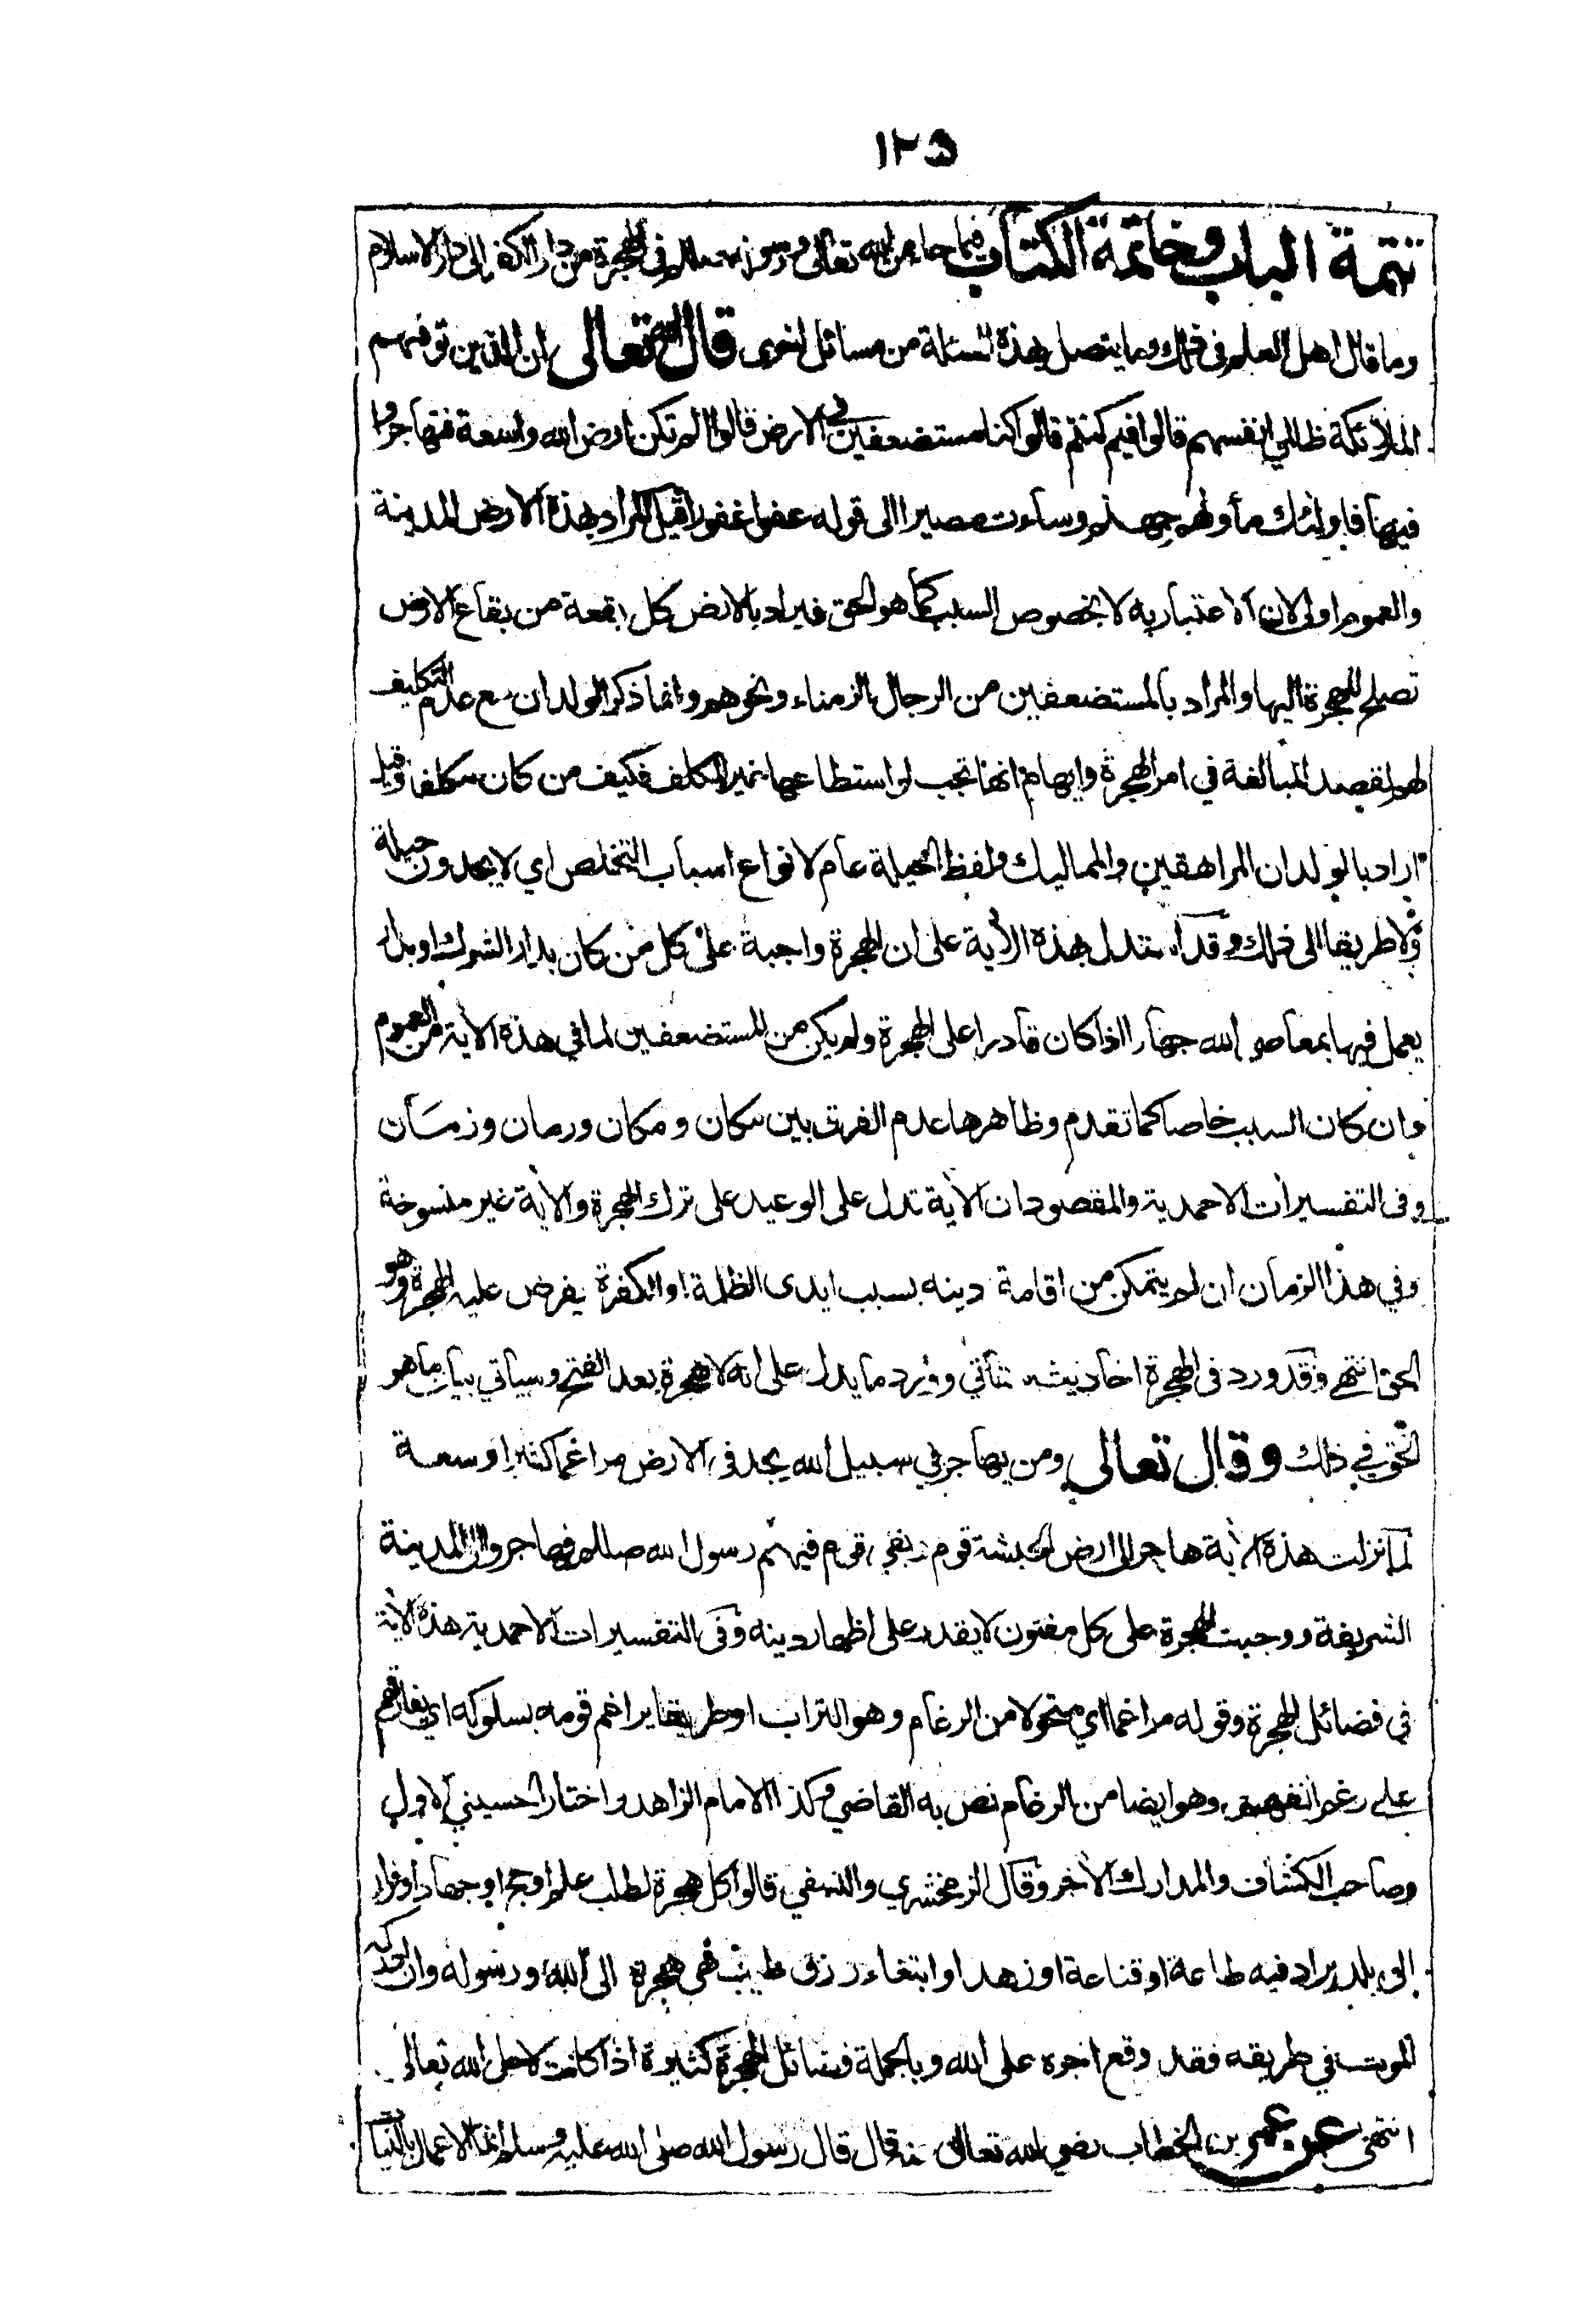 ١٢٥
تتمة الباب وخاتمة الكتاب فيما جاء من الله تعالى ورسوله صللم في الهجرة من دار الكفر الى دار الاسلام
وما قال اهل العلم في ذلك وما يتصل بهذه المسئلة من مسائل اخرى قال الله تعالى ان الذين توفهم
الملائكة ظالمي انفسهم قالوا فيم كنتم قالوا كنا مستضعفين في الارض قالوا الم تكن ارض الله واسعة فتهاجروا
فيها فاولئك مأوٰهم جهنم وساءت مصيرا الى قوله عفوا غفورا قيل المراد بهذه الارض المدينة
والعموم اولى لان الاعتبار به لا بخصوص السبب كما هو الحق فيراد بالارض كل بقعة من بقاع الارض
تصلح للهجرة اليها والمراد بالمستضعفين من الرجال الزمناء ونحوهم وانما ذكر الولدان مع عدم التكليف
لهم لقصد المبالغة في امر الهجرة وايهام انها تجب لو استطاعها غير المكلف فكيف من كان مكلفا وقيل
اراد بالولدان المراهقين والمماليك ولفظ الحيلة عام لانواع اسباب التخلص اي لا يجدون حيلة
ولا طريقا الى ذلك وقد استدل بهذه الآية على ان الهجرة واجبة على كل من كان بدار الشرك او بدار
يعمل فيها بمعاصي الله جهارا اذا كان قادرا على الهجرة ولم يكن من المستضعفين لما في هذه الآية من العموم
وان كان السبب خاصا كما تقدم وظاهرها عدم الفرق بين مكان ومكان وزمان وزمان
وفي التفسيرات الاحمدية والمقصود ان الآية تدل على الوعيد على ترك الهجرة والآية غير منسوخة
وفي هذا الزمان ان لم يتمكن من اقامة دينه بسبب ايدى الظلمة او الكفرة يفرض عليه الهجرة وهو
الحق انتهى وقد ورد في الهجرة احاديث ستأتي وورد ما يدل على انه لا هجرة بعد الفتح وسيأتي بيان ما هو
الحق في ذلك وقال تعالى ومن يهاجر في سبيل الله يجد في الارض مراغما كثيرا وسعة
لما نزلت هذه الآية هاجر الى ارض الحبشة قوم وبقي قوم فيهم رسول الله صللم فهاجروا الى المدينة
الشريفة ووجبت الهجرة على كل مفتون لا يقدر على اظهار دينه وفي التفسيرات الاحمدية هذه الآية
في فضائل الهجرة وقوله مراغما اي متحولا من الرغام وهو التراب او طريقا يراغم قومه بسلوكه اي يفارقهم
على رغم انفهم وهو ايضا من الرغام نص به القاضي وكذا الامام الزاهد واختار الحسيني الاول
وصاحب الكشاف والمدارك الآخر وقال الزمخشري والنسفي قالوا كل هجرة لطلب علم او حج او جهاد او فرار
الى بلد يراد فيه طاعة او قناعة او زهدا او ابتغاء رزق طيب فهي هجرة الى الله ورسوله وان ادركه
الموت في طريقه فقد وقع اجره على الله وبالجملة فضائل الهجرة كثيرة اذا كانت لاجل الله تعالى
انتهى عن عمر بن الخطاب رضي الله تعالى عنه قال قال رسول الله صلى الله عليه وسلم انما الاعمال بالنيات